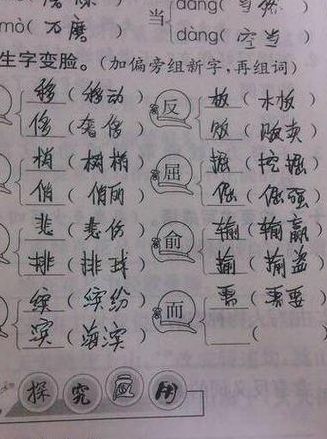 dāng( 当然 )
当
mò( 石磨 ) dàng( 空当 )
生字变脸。(加偏旁组新字,再组词)
移( 移动 ) 板( 木板 )
反
侈( 奢侈 ) 贩( 贩卖 )
梢( 树梢 ) 掘( 挖掘 )
屈
俏( 俏丽 ) 倔( 倔强 )
悲( 悲伤 ) 输( 输赢 )
俞
排( 排球 ) 偷( 偷盗 )
缤( 缤纷 ) 需( 需要 )
而
滨( 海滨 ) (
探 究 用